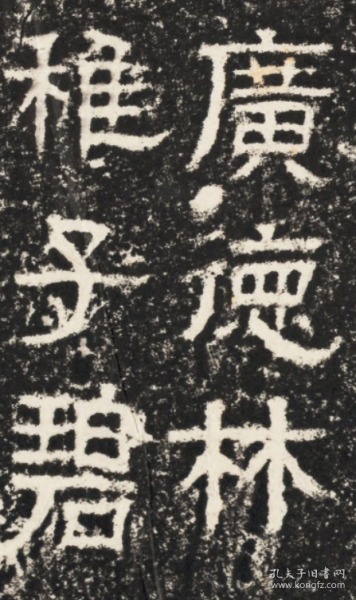 廣徳林
稚子碧
孔夫子旧书网
www.kongfz.com